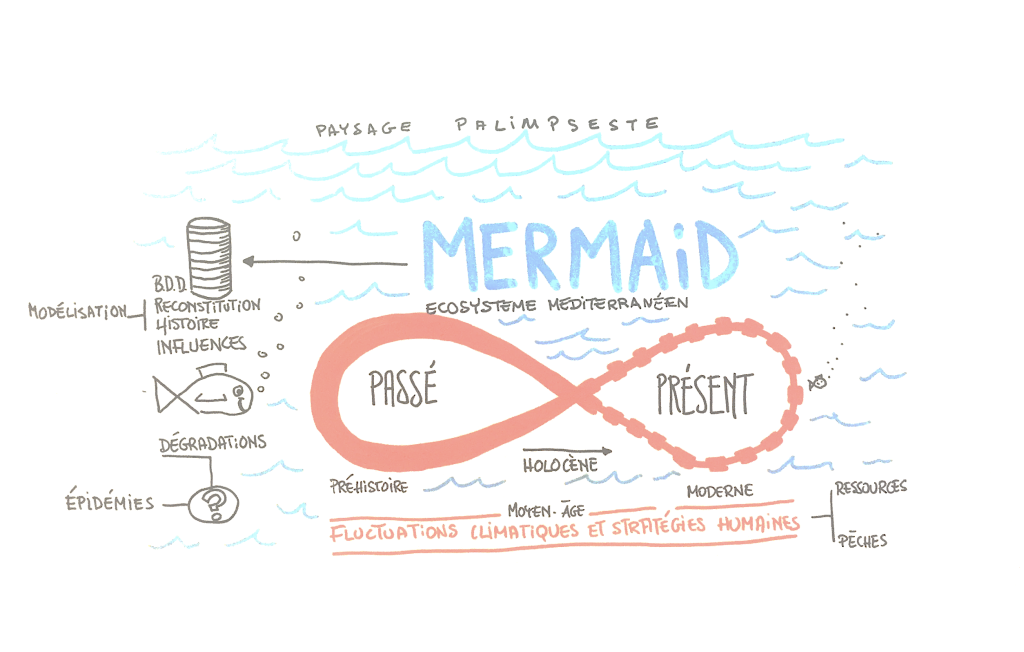 PAYSAGE PALIMPSESTE
MERMAID
ECOSYSTEME MÉDITERRANÉEN
B.D.D.
MODÉLISATION
RECONSTITUTION
HISTOIRE
INFLUENCES
PASSÉ
PRÉSENT
DÉGRADATIONS
ÉPIDÉMIES
?
HOLOCÈNE
PRÉHISTOIRE
MOYEN-ÂGE
MODERNE
FLUCTUATIONS CLIMATIQUES ET STRATÉGIES HUMAINES
RESSOURCES
PÊCHES